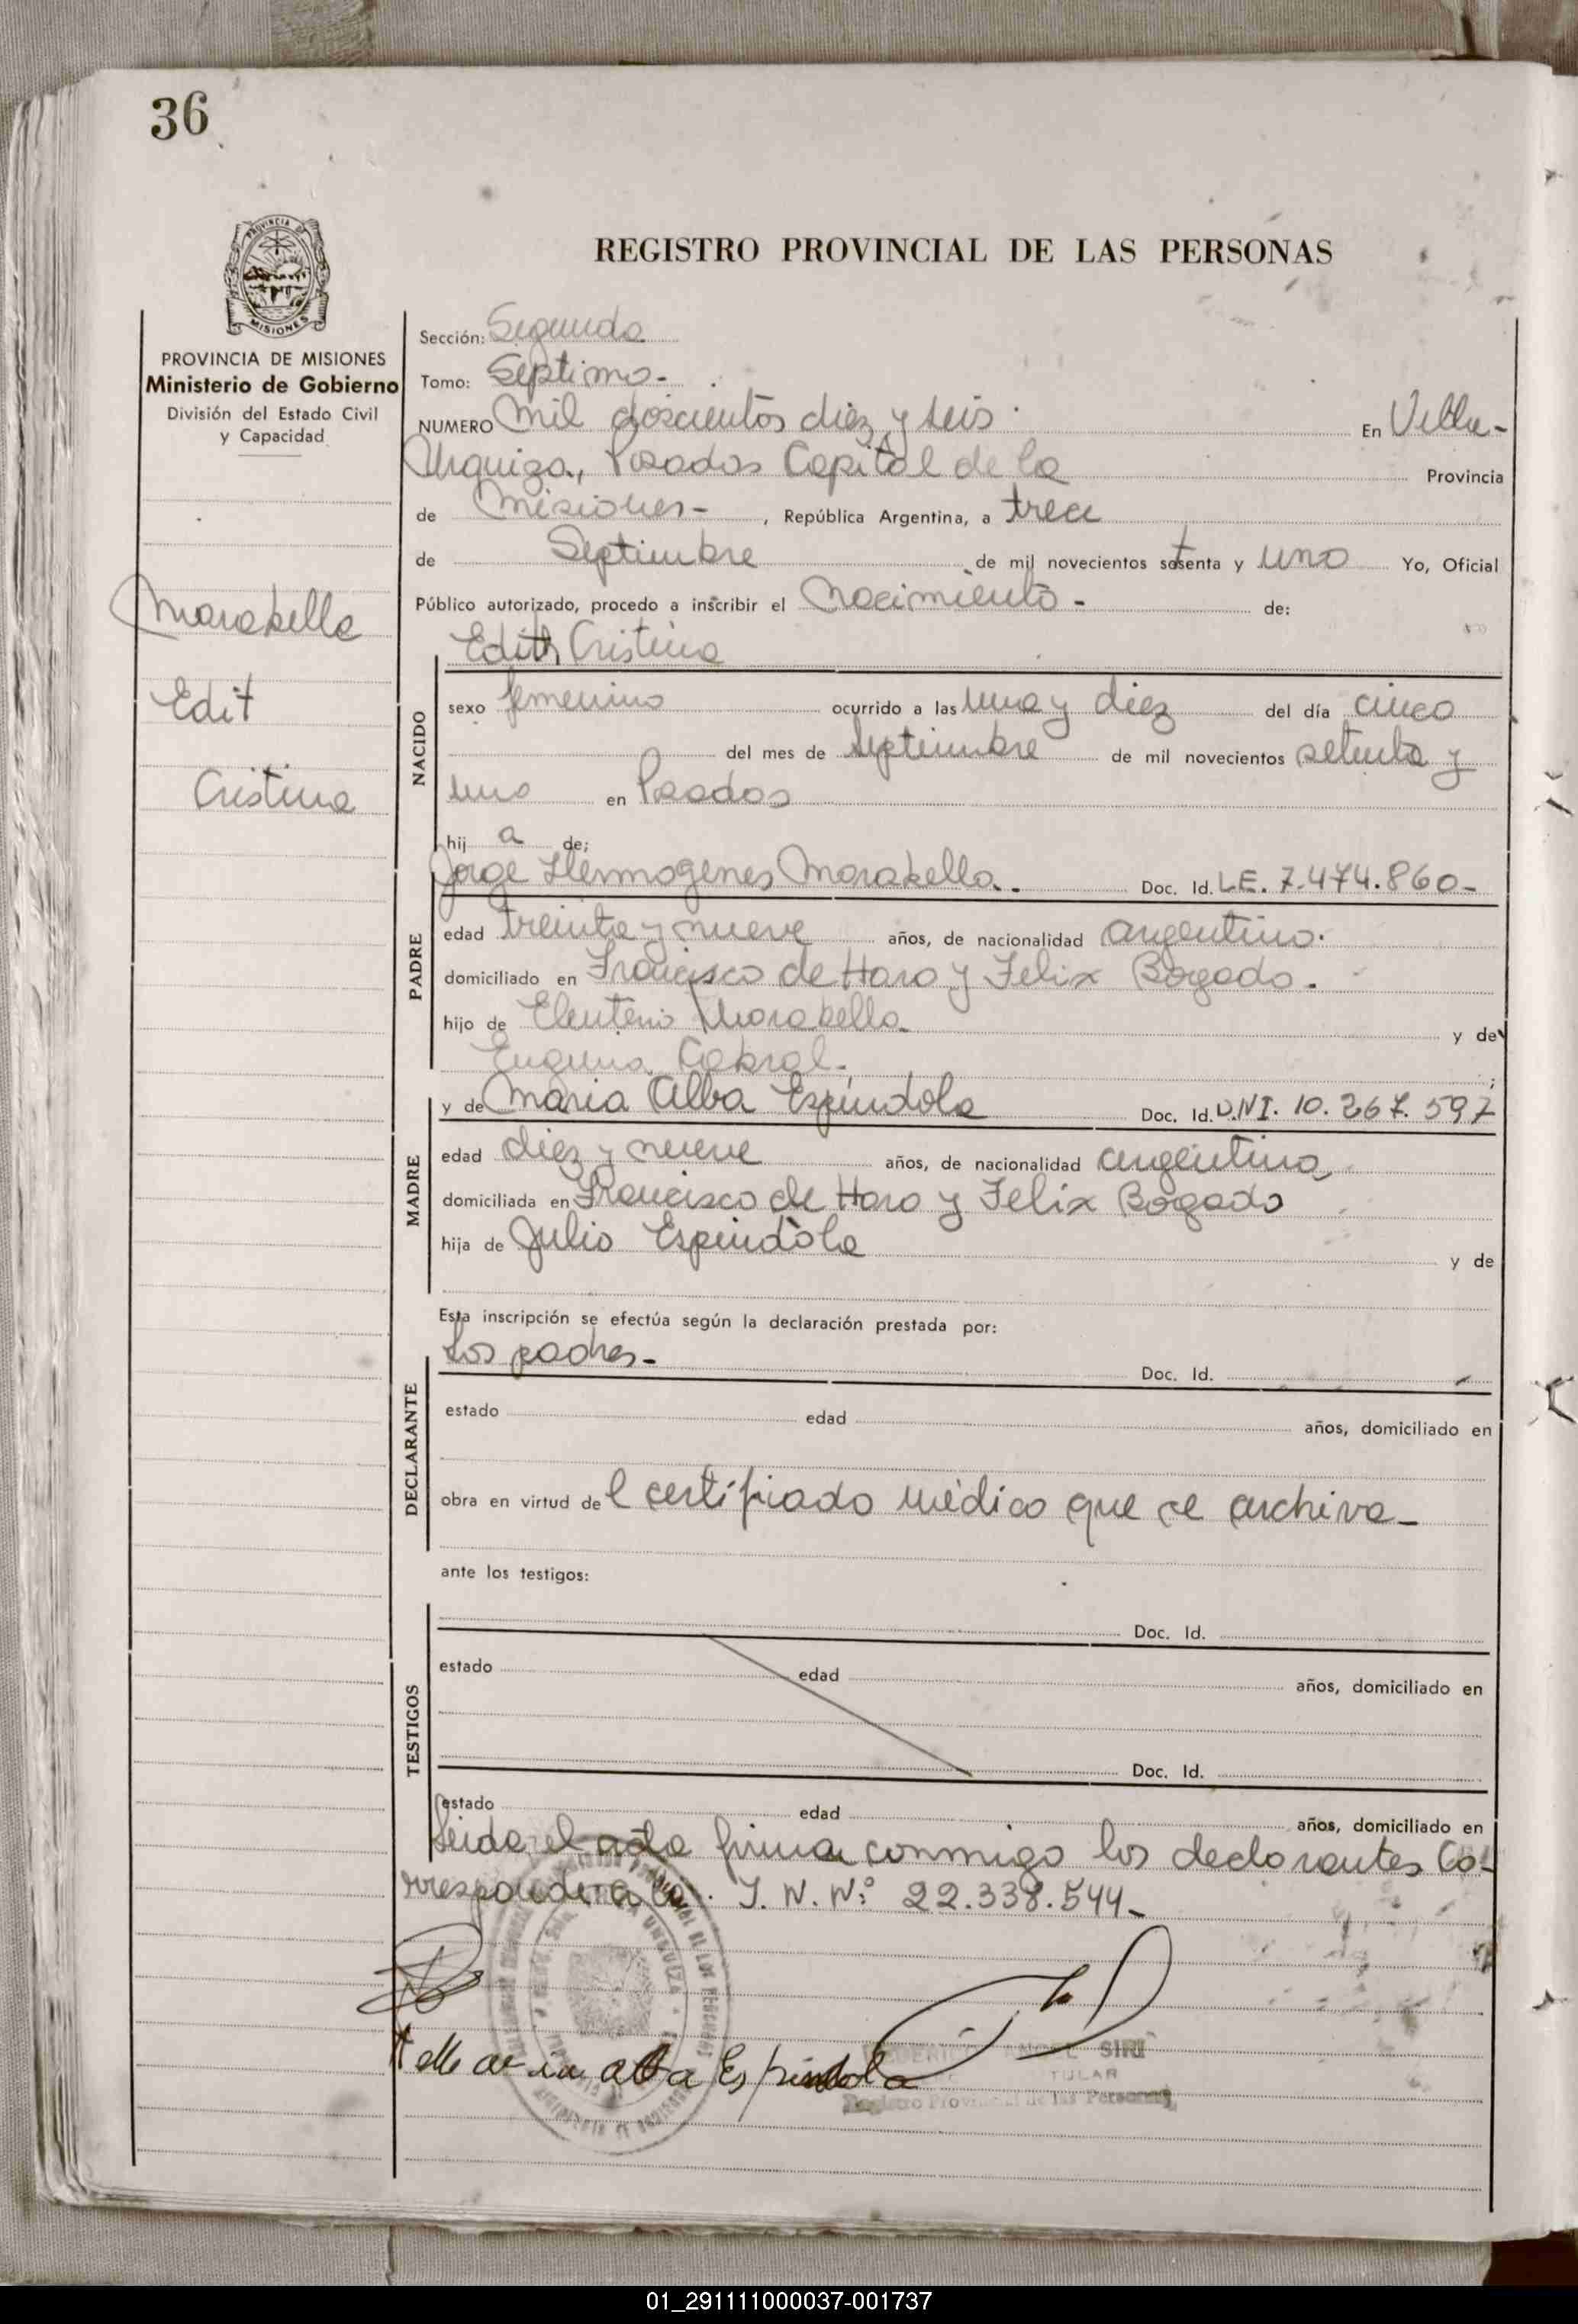 36
PROVINCIA DE MISIONES
REGISTRO PROVINCIAL DE LAS PERSONAS
PROVINCIA DE MISIONES
Ministerio de Gobierno
División del Estado Civil
y Capacidad
Marabella
Edit
Cristina
Sección: Segunda
Tomo: Septimo-
NUMERO Mil doscientos diez y seis. En Villa-
Urquiza, Posadas Capital de la Provincia
de Misiones- , República Argentina, a trece
de Septiembre de mil novecientos setenta y uno Yo, Oficial
Público autorizado, procedo a inscribir el Nacimiento- de:
Edith Cristina
NACIDO
sexo femenino ocurrido a las una y diez del día cinco
del mes de Septiembre de mil novecientos setenta y
uno en Posadas
hij a de;
Jorge Hermogenes Marabella. Doc. Id. LE. 7.474.860-
PADRE
edad treinta y nueve años, de nacionalidad argentino.
domiciliado en Francisco de Haro y Felix Bogado.
hijo de Eleuterio Marabella y de
Cabral.
y de Maria Alba Espindola Doc. Id. D.N.I. 10.267.597
MADRE
edad diez y nueve años, de nacionalidad argentina
domiciliada en Francisco de Haro y Felix Bogado
hija de Julio Espindola y de
Esta inscripción se efectúa según la declaración prestada por:
los padres- Doc. Id.
DECLARANTE
estado edad años, domiciliado en
obra en virtud de l certificado médico que se archiva-
ante los testigos:
Doc. Id.
TESTIGOS
estado edad años, domiciliado en
Doc. Id.
estado edad años, domiciliado en
Leida el acta firman conmigo los declarantes Co-
rresponde a la I. N. N:° 22.338.544-
SIRI
TULAR
Registro Provincial de las Personas
Maria alba Espindola
01_291111000037-001737